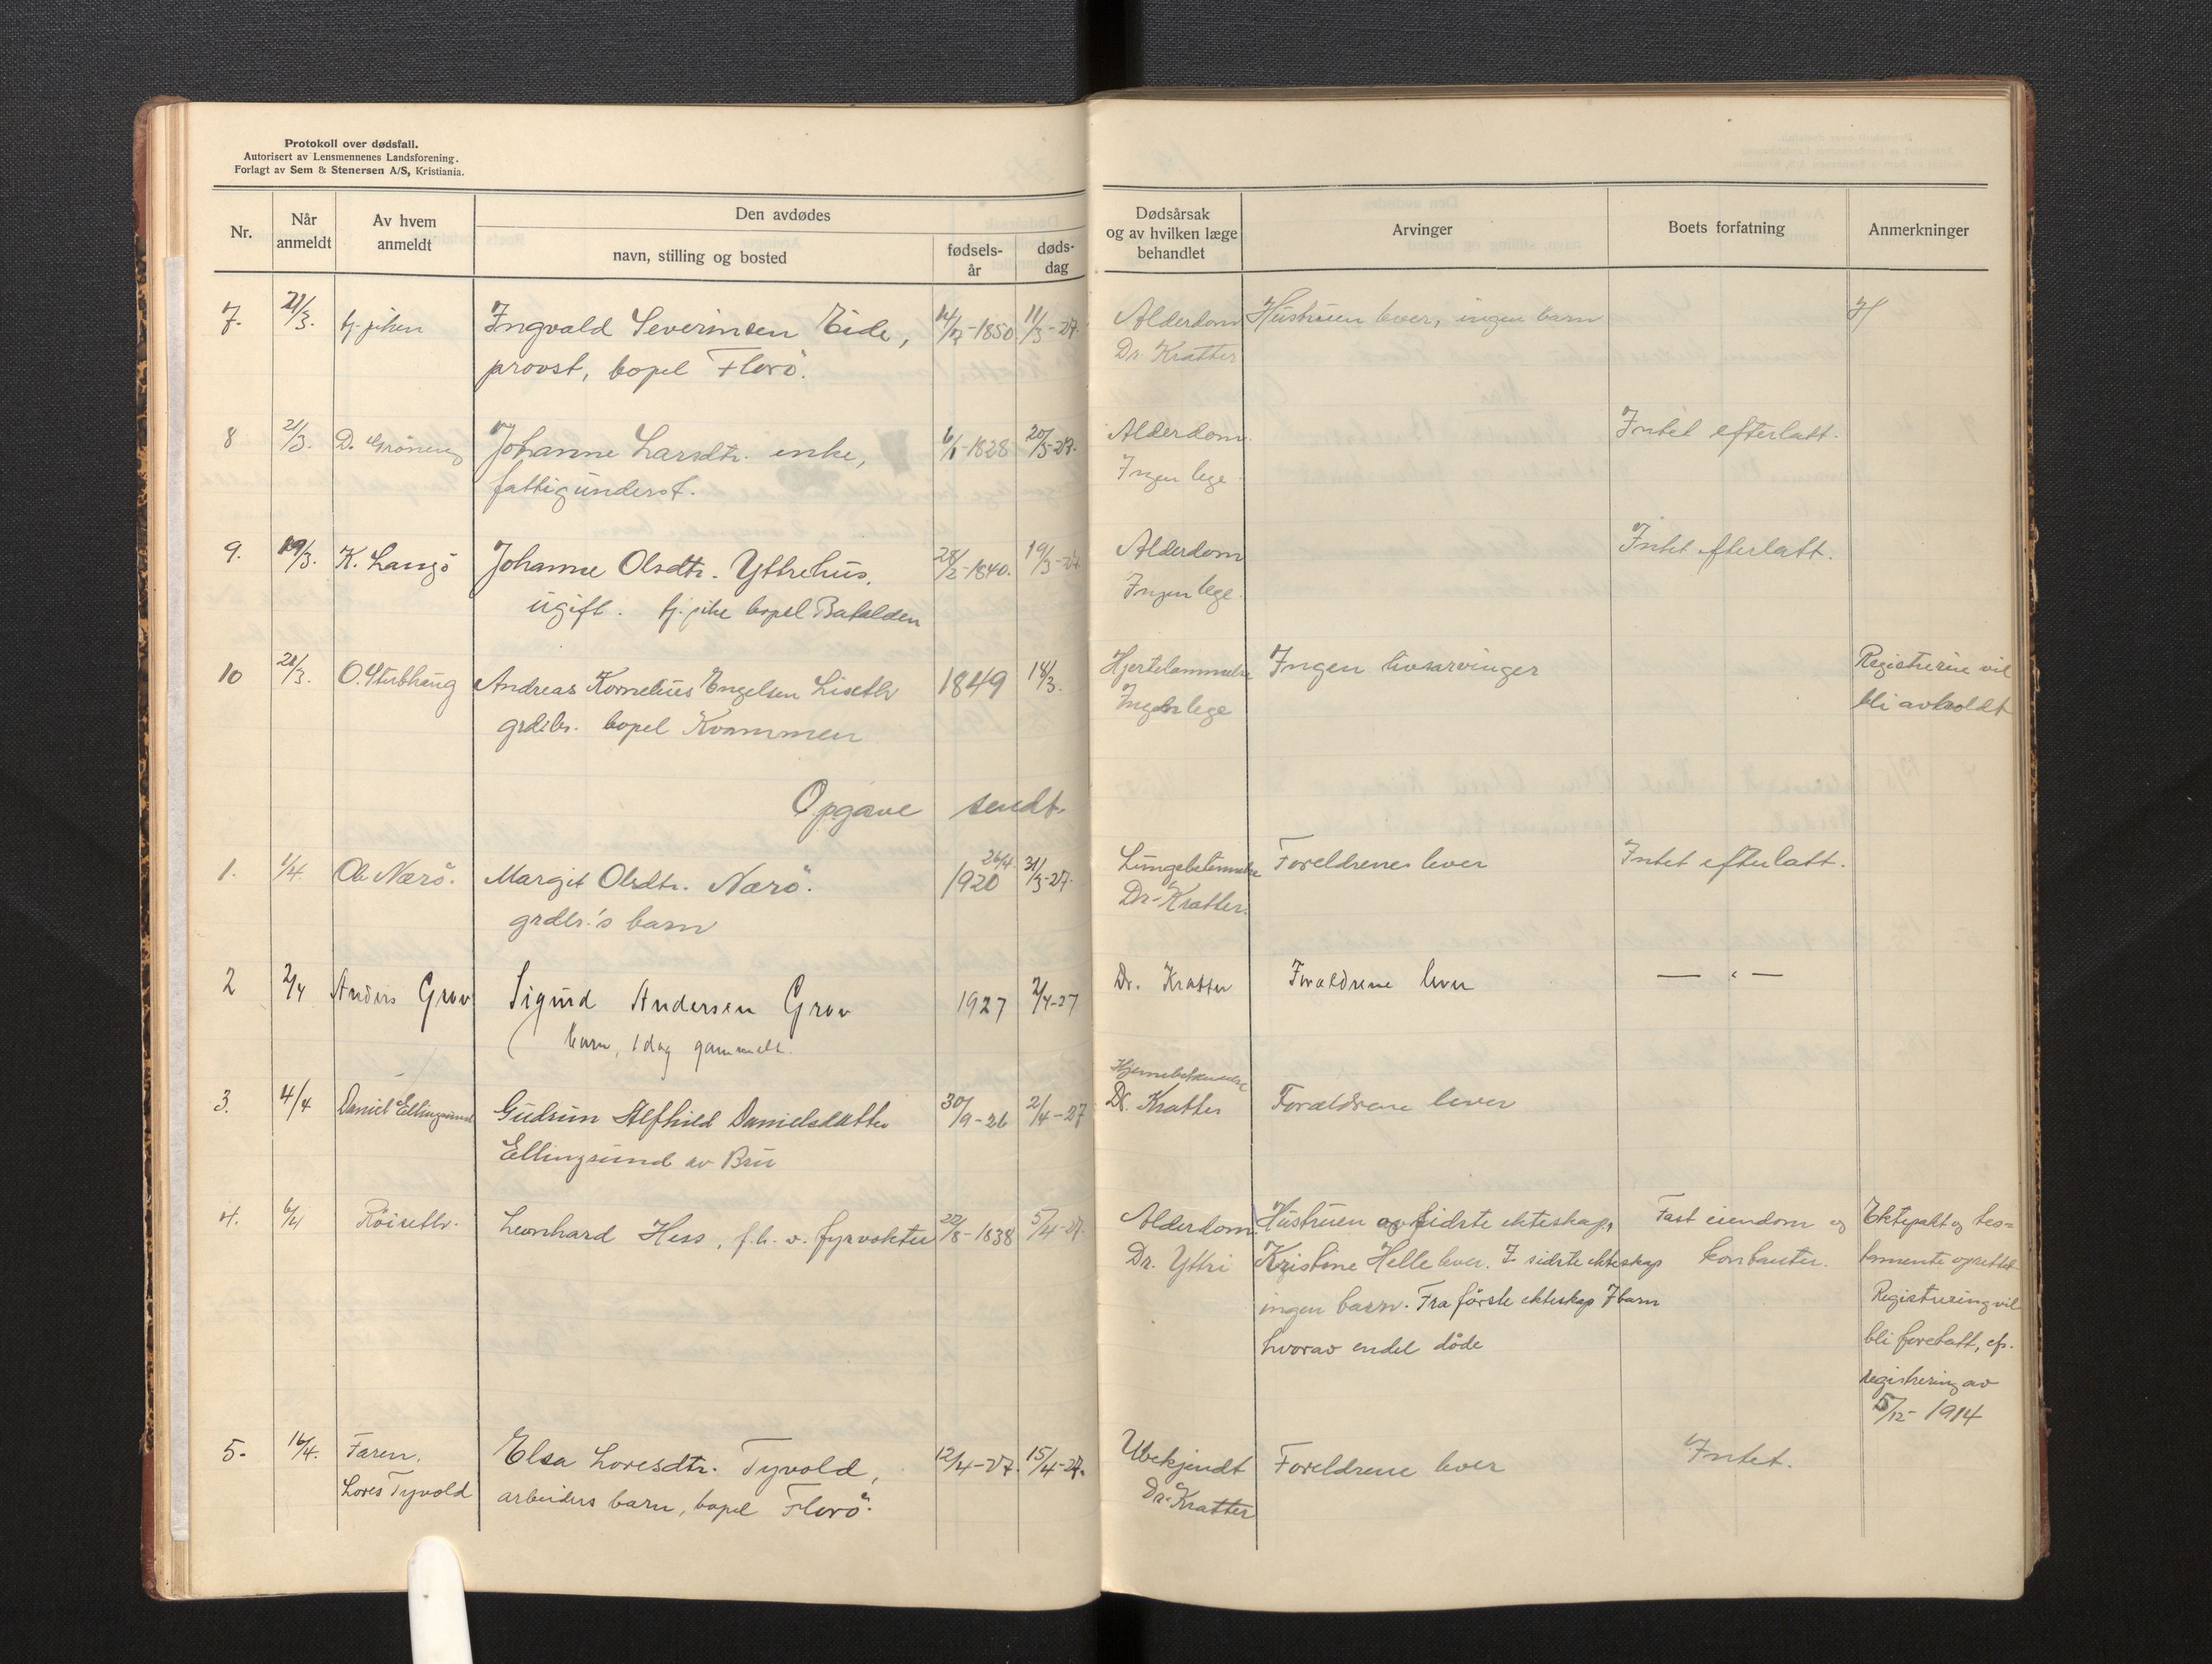 Protokoll over dødsfall.
Autorisert av Lensmennenes Landsforening.
Forlagt av Sem & Stenersen A/S, Kristiania.
Nr.
Når anmeldt
Av hvem anmeldt
Den avdødes
navn, stilling og bosted
fødsels-år
døds-dag
Dødsårsak og av hvilken læge behandlet
Arvinger
Boets forfatning
Anmerkninger
7. 21/3. tj. piken Ingvald Severinsen Eide, 1850 11/3-27. Alderdom Hustruen lever, ingen barn
provst, bopel Florö. Dr. Kratter
8 21/3. D. Grönevg Johanne Larsdtr. enke, 6/1-1828 20/3-27. Alderdom. Intet efterlatt.
fattigunderst. Ingen lege.
9. 19/3. K. Langö Johanne Olsdtr. Yttrehus. 28/2-1840. 19/3-27 Alderdom Intet efterlatt.
ugift. tj. pike bopel Batalden Ingen lege.
10 21/3. O. Stubhaug Andreas Kornelius Engelsen Liseth 1849 14/3. Hjertelammelse Ingen livsarvinger Registrering vil
grdbr. bopel Kvammen Ingen lege bli avholdt
Opgave sendt.
1. 1/4. Ole Nærö. Margit Olsdtr. Nærö. 26/4 1920 31/3-27. Lungebetennelse Foreldrenes lever Intet efterlatt.
grdbr.'s barn Dr. Kratter.
2 2/4 Anders Grov Sigurd Andersen Grov 1927 2/4-27 Dr. Kratter Forældrene lever — " —
barn, 1 dag gammelt.
3. 4/4 Daniel Ellingsund Gudrun Alfhild Danielsdatter 30/9-26 2/4-27 Hjernebetennelse Dr. Kratter Forældrene lever
Ellingsund av Bru
4. 6/4 Röiseth. Leonhard Hess, f.h.v. fyrvokter 22/8-1838 5/4-27. Alderdom. Hustruen av sidste ekteskap, Fast eiendom og Ektepakt og tes=
Dr. Yttri Kristine Helle lever. I sidste ekteskap kontanter. tamente oprettet
ingen barn. Fra förste ekteskap 7 barn Registrering vil
hvorav endel döde bli foretatt, cfr.
registrering av
5/12-1914
5. 16/4. Faren, Elsa Loresdtr. Tyvold, 12/4-27. 15/4-27. Ubekjendt Foreldrene lever Intet.
Lores Tyvold arbeiders barn, bopel Florö. Dr. Kratter